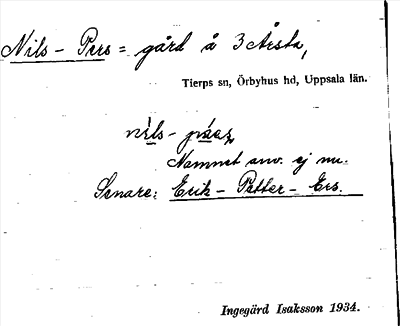 Nils - Pers = gård å 3 Årsta,
Tierps sn, Örbyhus hd, Uppsala län.
nìls - pǽas
Namnet anv. ej nu.
Senare: Erik - Petter - Ers.
Ingegärd Isaksson 1934.